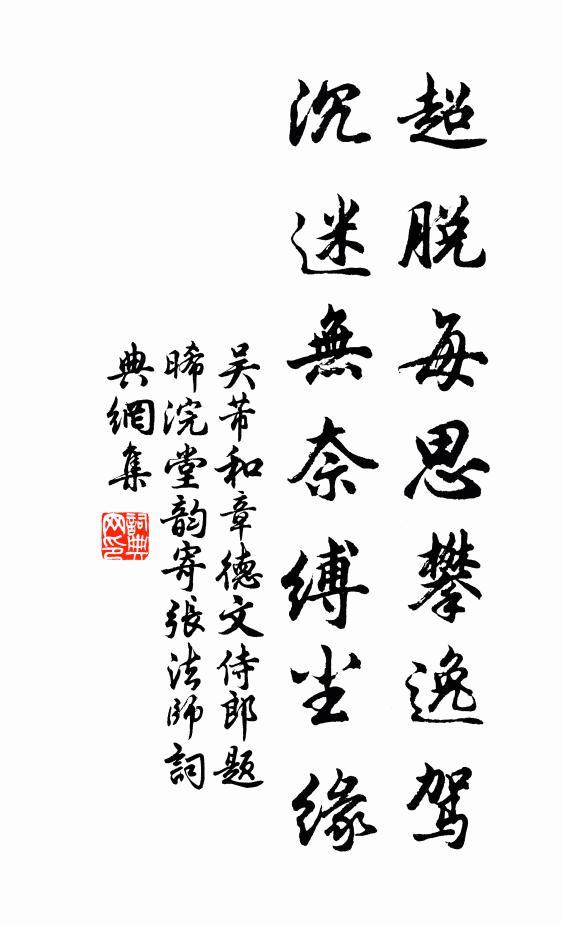 超脱每思攀逸驾
沉迷無奈缚尘缘
吴芾和章德文侍郎题
晞浣堂韵寄張法師詞
典網集
詞典
网印